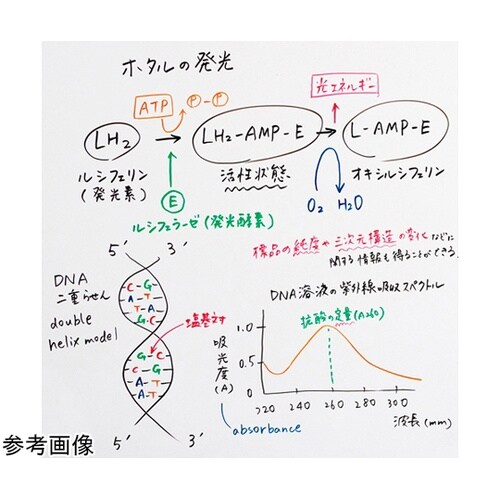 ホタルの発光
ATP
P-P
光エネルギー
LH₂
LH₂-AMP-E
L-AMP-E
ルシフェリン
(発光素)
活性状態
オキシルシフェリン
E
O₂
H₂O
ルシフェラーゼ(発光酵素)
標品の純度や三次元構造の変化などに
関する情報も得ることができる.
5' 3'
DNA
二重らせん
double
helix model
C-G
A-T
T-A
G-C
塩基対
G-C
C-G
A-A
A-T
5' 3'
DNA溶液の紫外線吸収スペクトル
核酸の定量(A260)
吸光度(A)
1.0
0.5
220 240 260 280 300
波長(mm)
absorbance
参考画像